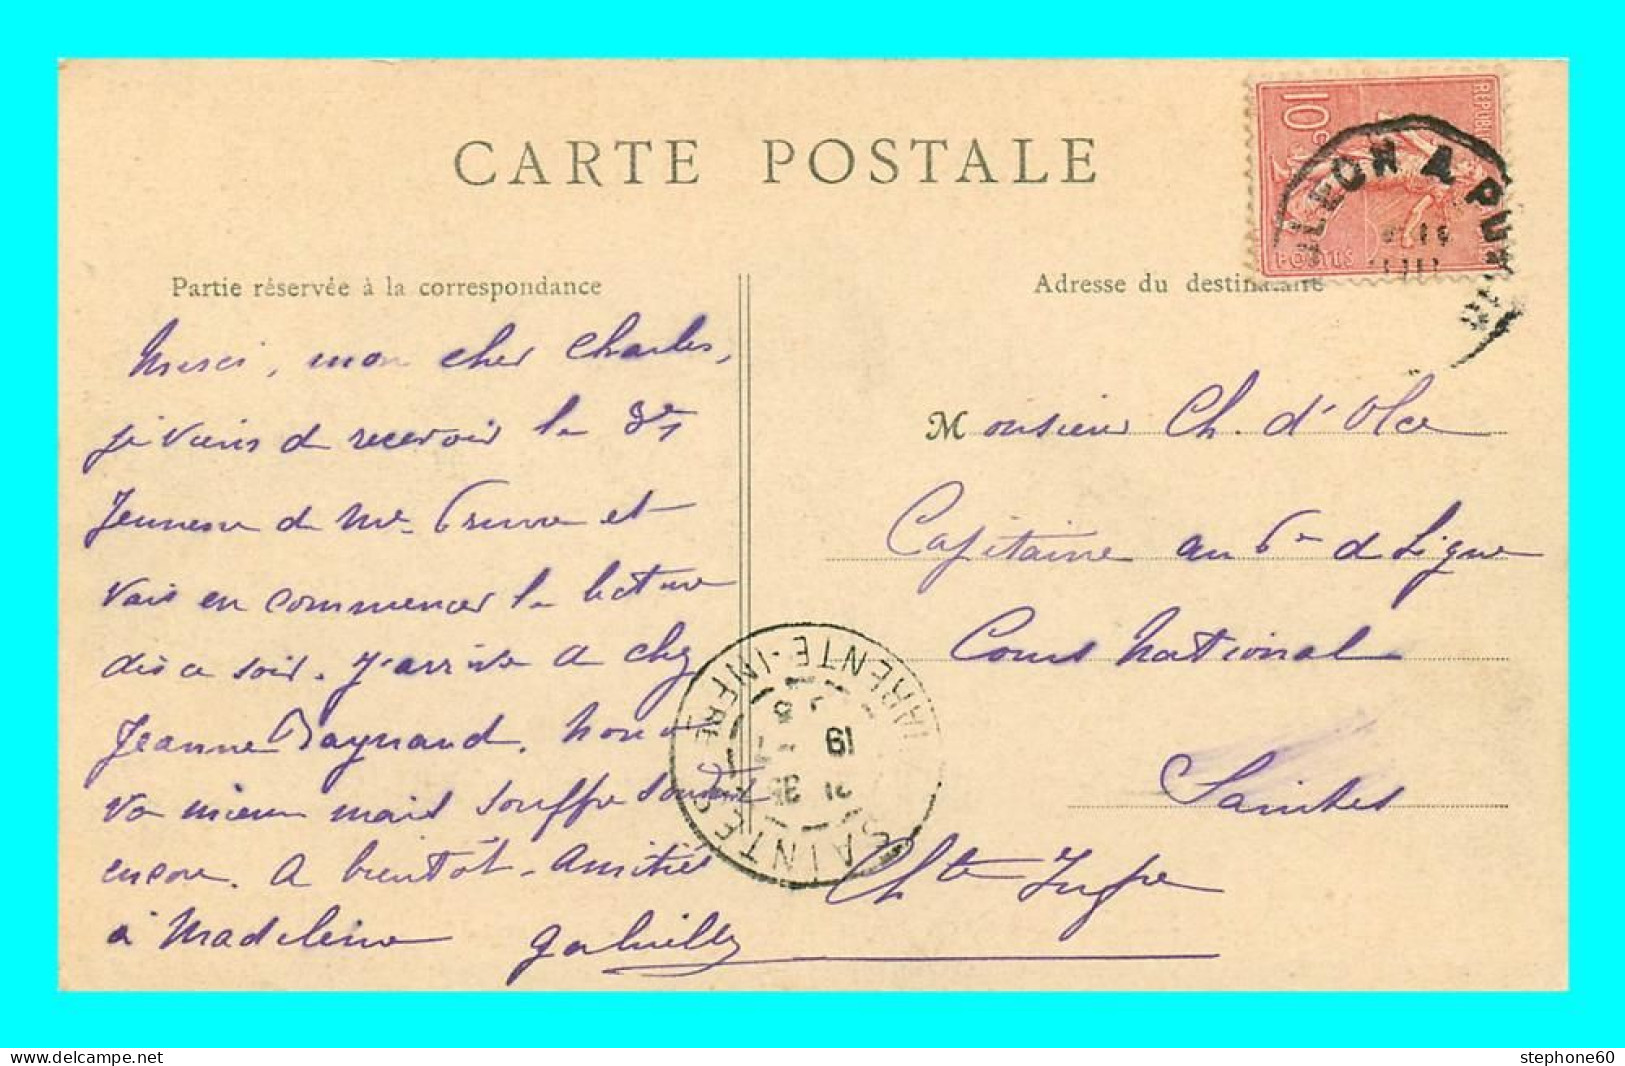 CARTE POSTALE
Partie réservée à la correspondance
Merci, mon cher Charles,
je viens de recevoir la
Jeunesse de Me. et
vais en commencer la lecture
dès ce soir. J'arrive de chez
Jeanne Raynaud.
va mieux mais souffre
encore. A bientôt. Amitiés
à Madeleine Gabrielle
10c
REPUBLI
POSTS
LEON A PU
Adresse du destinataire
Monsieur Ch. d'Olce
Capitaine au 6e de Ligne
Cours National
Saintes
Chte Infre
SAINTES
ARENTE-INFRE
19
21
stephone60